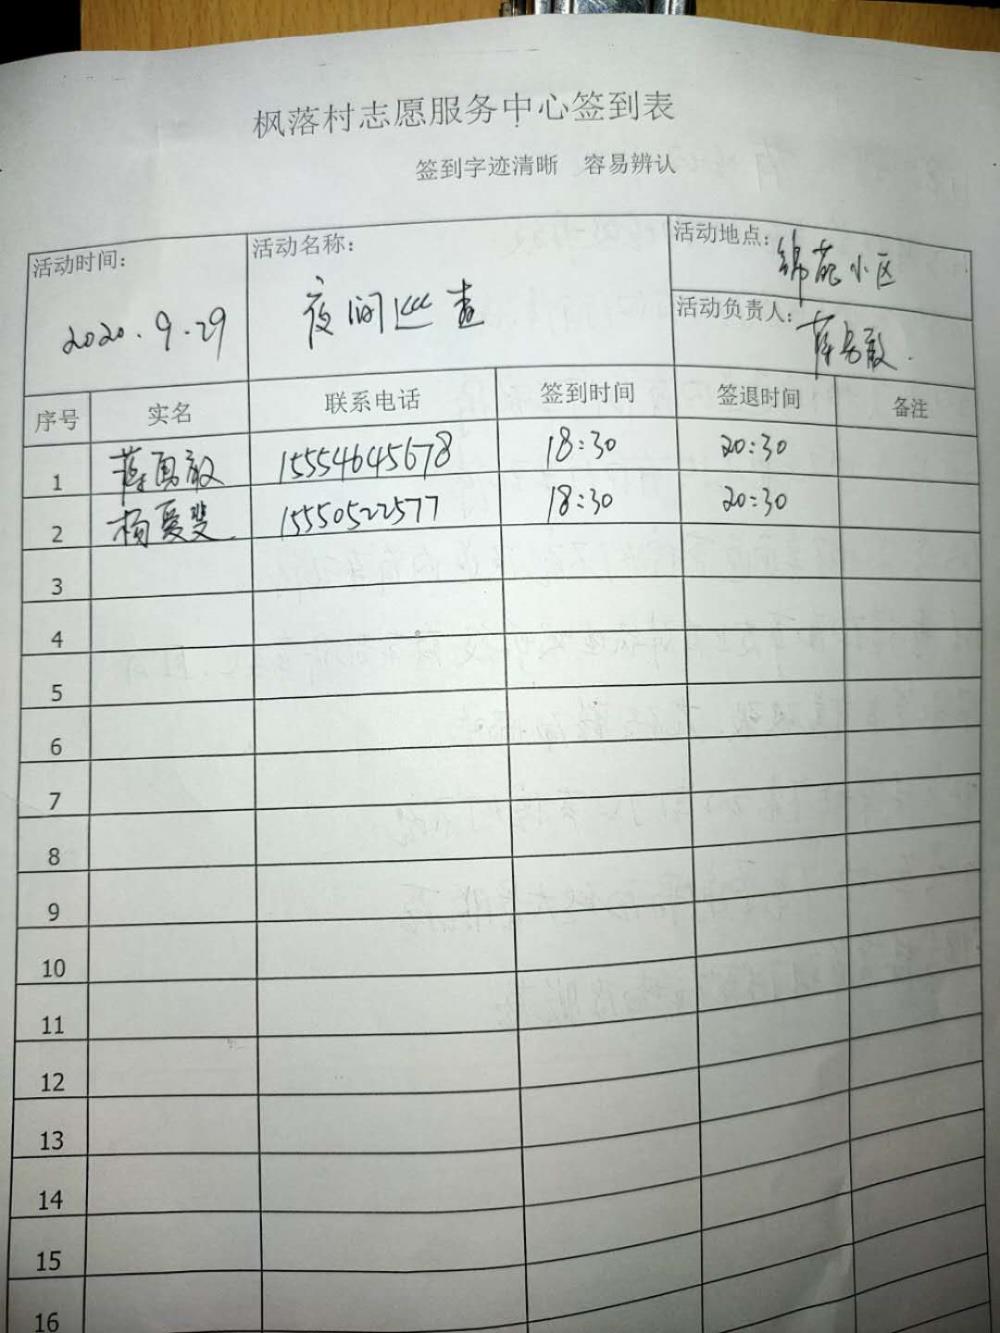 枫落村志愿服务中心签到表
签到字迹清晰 容易辨认
活动时间: 活动名称: 活动地点: 锦苑小区
2020.9.29 夜间巡查
活动负责人:
序号 实名 联系电话 签到时间 签退时间 备注
1 15554645678 18:30 20:30
2 杨爱斐 15550522577 18:30 20:30
3
4
5
6
7
8
9
10
11
12
13
14
15
16